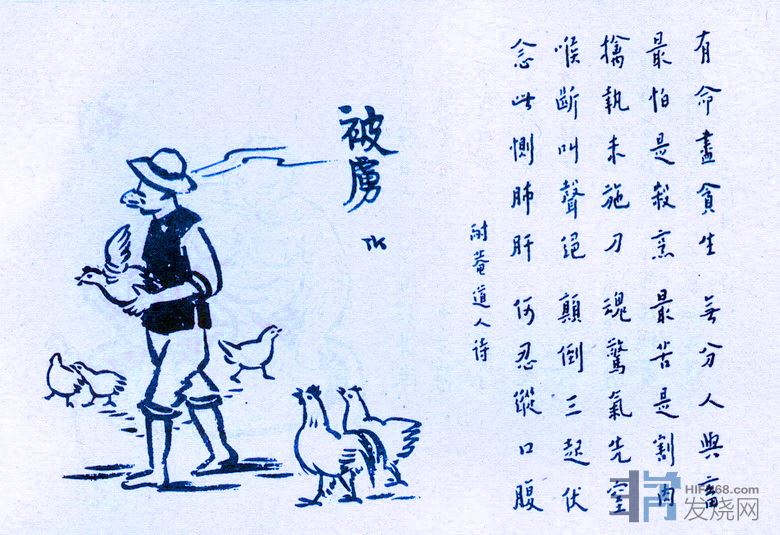 有命盡貪生 無分人與畜
最怕是殺烹 最苦是割肉
擒執未施刀 魂驚氣先窒
喉斷叫聲絕 顛倒三起伏
念此惻肺肝 何忍縱口腹
耐菴道人诗
被虜
TK
HIFI168.com
发烧网